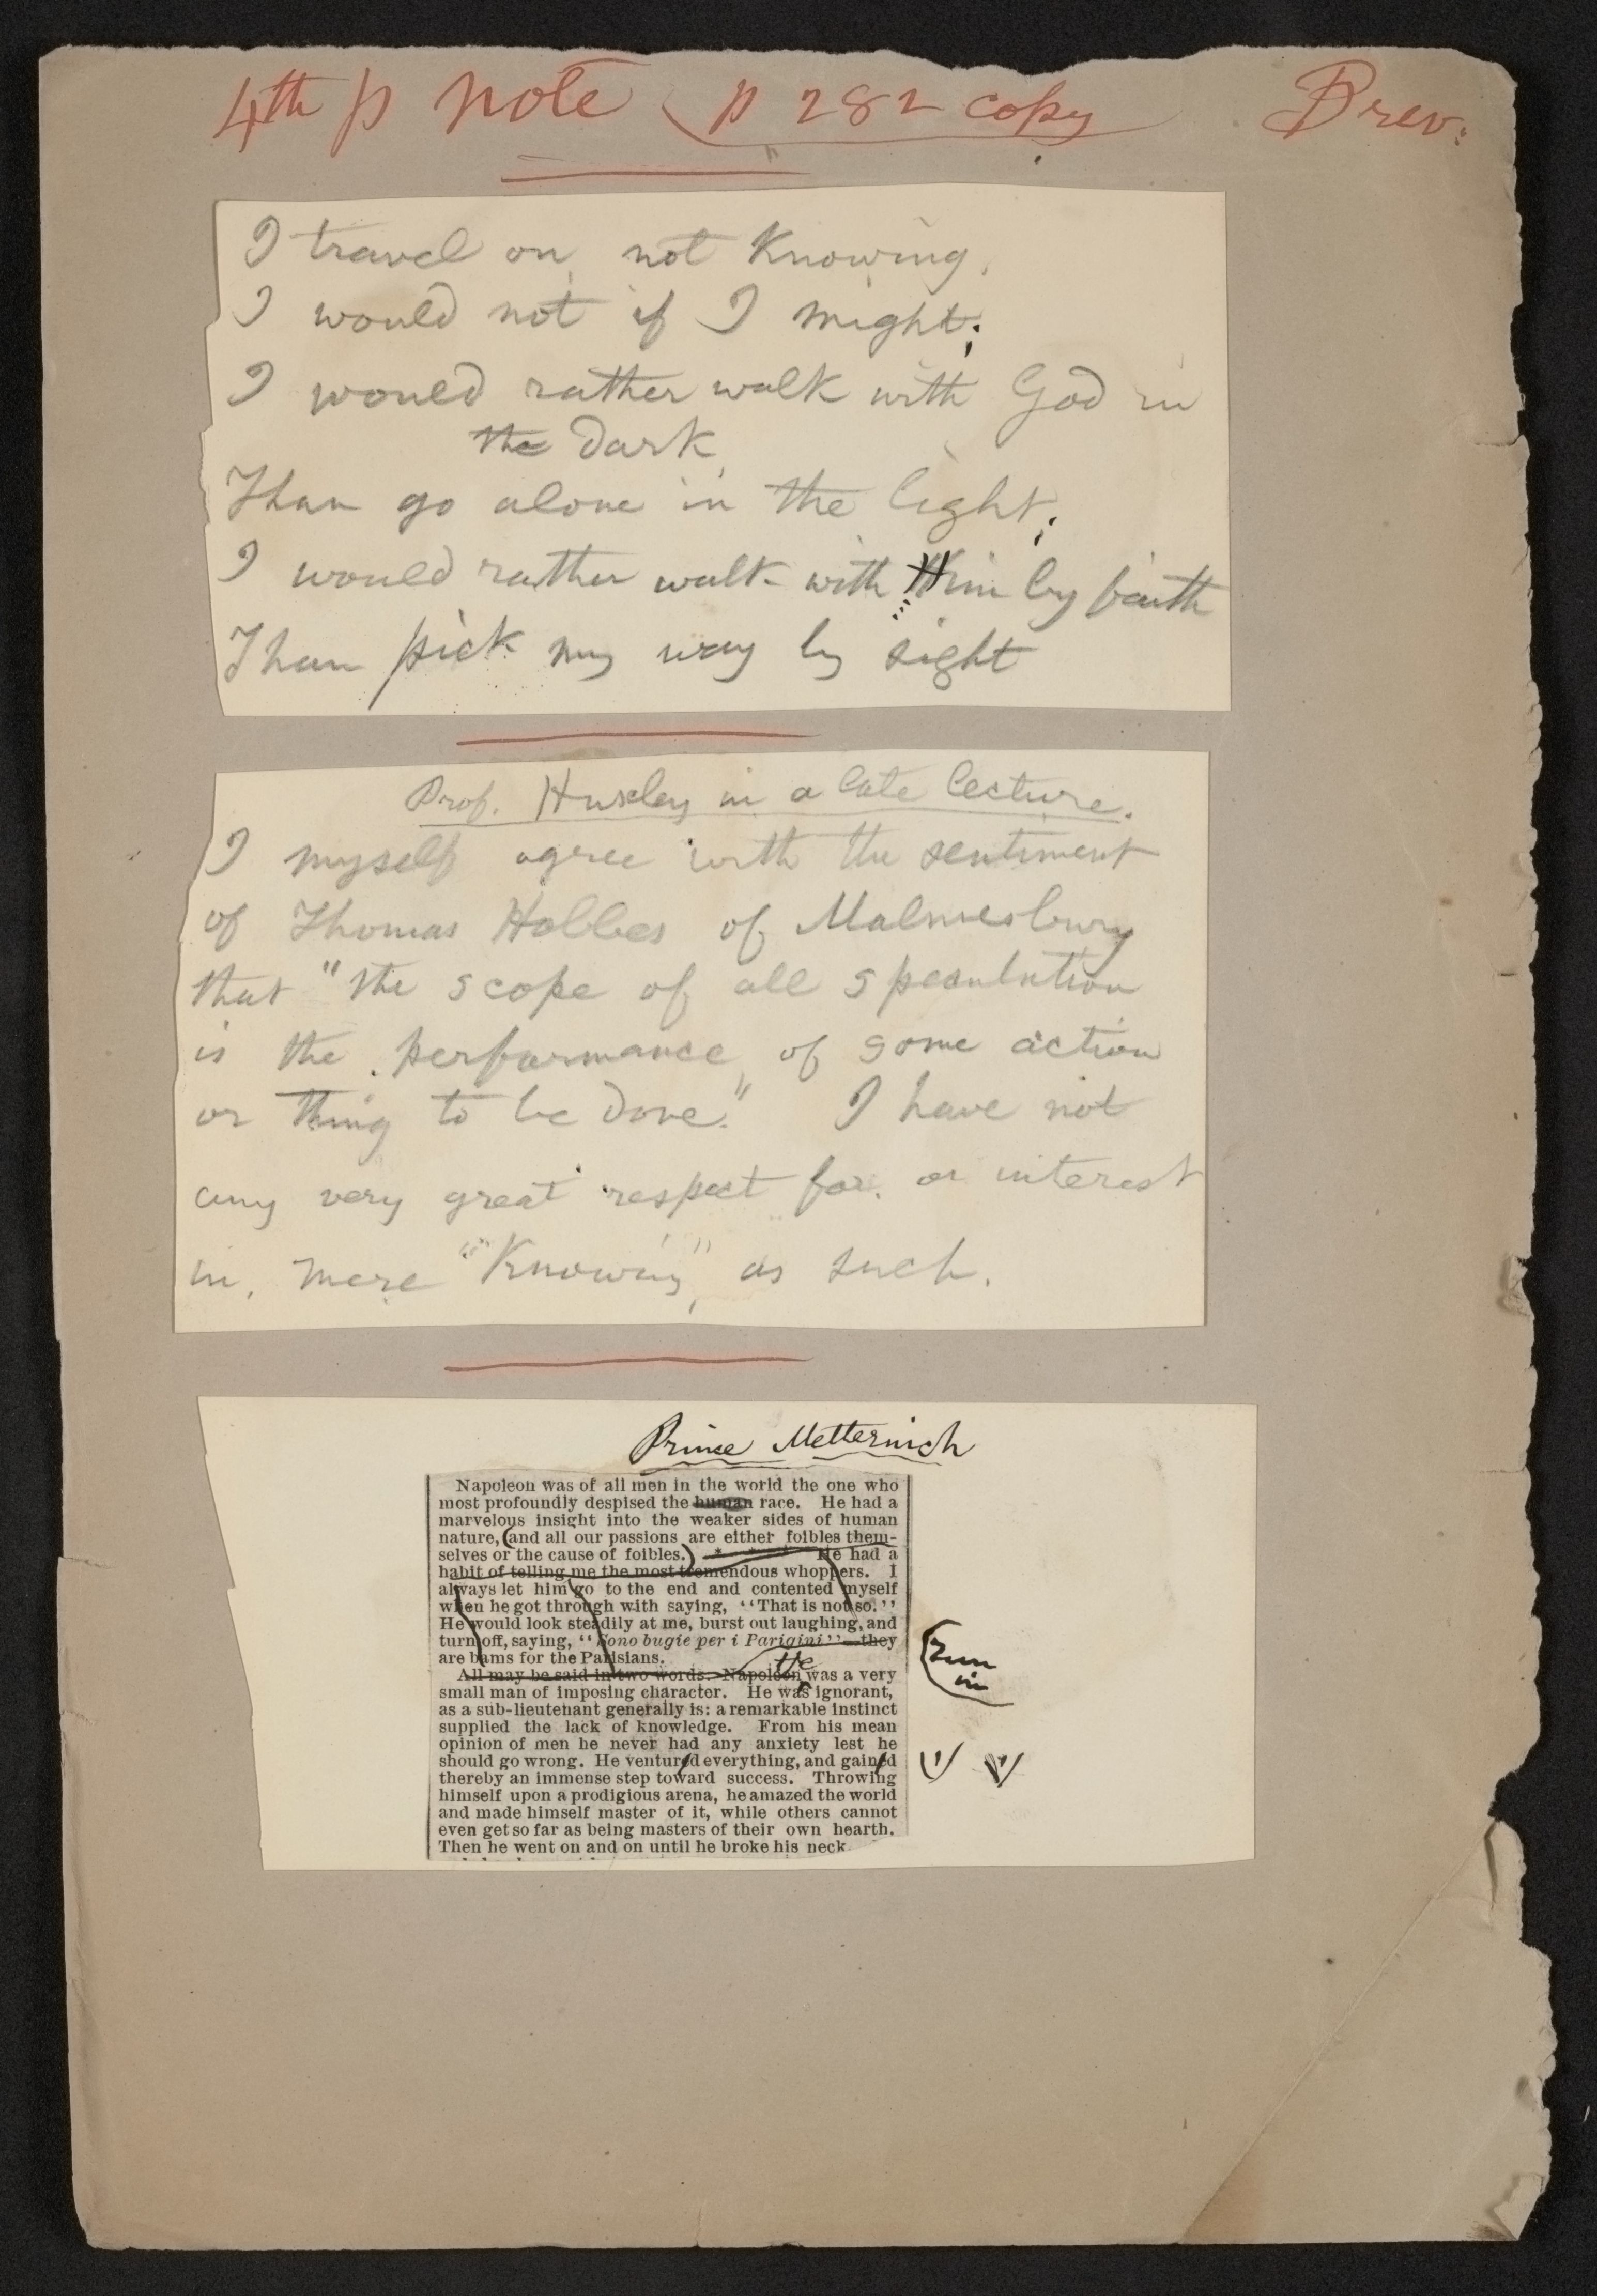 4th p note (p 282 copy Brev:
I travel on, not Knowing,
I would not if I might;
I would rather walk with God in
the dark,
Than go alone in the light;
I would rather walk with Him by faith
Than pick my way by sight
Prof. Huxley in a late lecture.
I myself agree with the sentiment
of Thomas Hobbes of Malmesbury
that "the scope of all speculation
is the performance of some action
or thing to be done." I have not
any very great respect for, or interest
in, mere "Knowing," as such.
Prince Metternich
Napoleon was of all men in the world the one who
most profoundly despised the human race. He had a
marvelous insight into the weaker sides of human
nature, (and all our passions are either foibles them-
selves or the cause of foibles.) * * * He had a
habit of telling me the most tremendous whoppers. I
always let him go to the end and contented myself
when he got through with saying, "That is not so."
He would look steadily at me, burst out laughing, and
turn off, saying, "Sono bugie per i Parigini"—they
are bams for the Parisians.
the
All may be said in two words. Napoleon was a very
small man of imposing character. He was ignorant,
as a sub-lieutenant generally is: a remarkable instinct
supplied the lack of knowledge. From his mean
opinion of men he never had any anxiety lest he
should go wrong. He ventured everything, and gained
thereby an immense step toward success. Throwing
himself upon a prodigious arena, he amazed the world
and made himself master of it, while others cannot
even get so far as being masters of their own hearth.
Then he went on and on until he broke his neck
(run
in